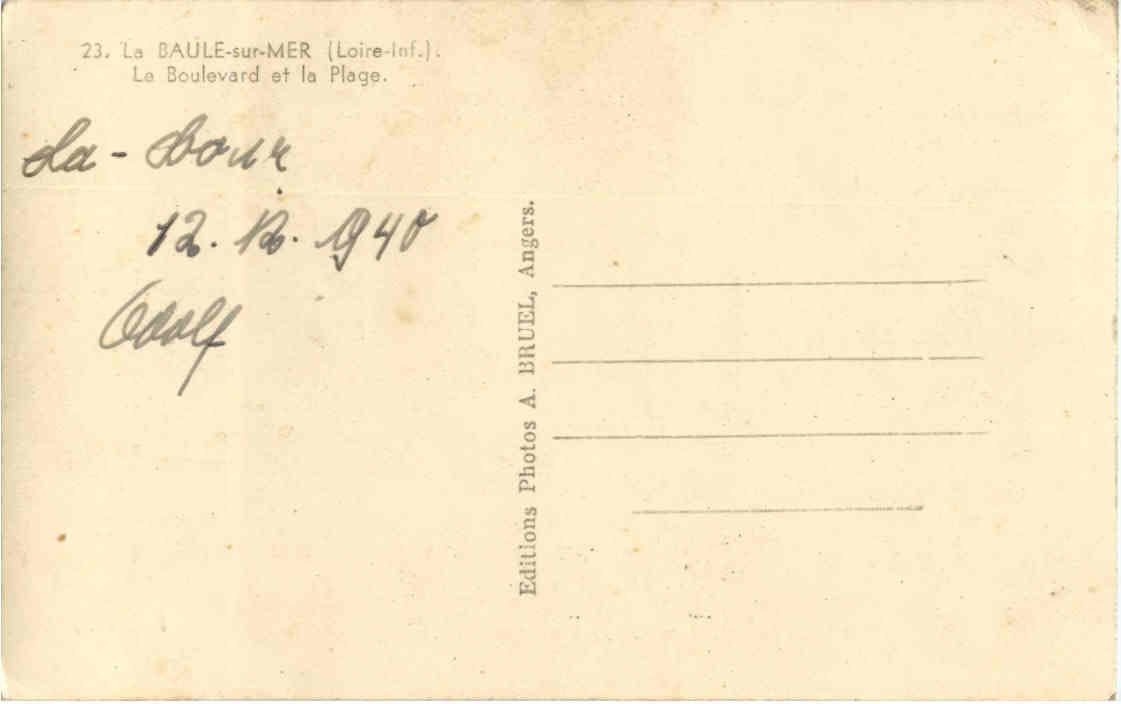 23. La BAULE-sur-MER (Loire-Inf.).
Le Boulevard et la Plage.
La-
12. 12. 940
Adolf
Editions Photos A. BRUEL, Angers.